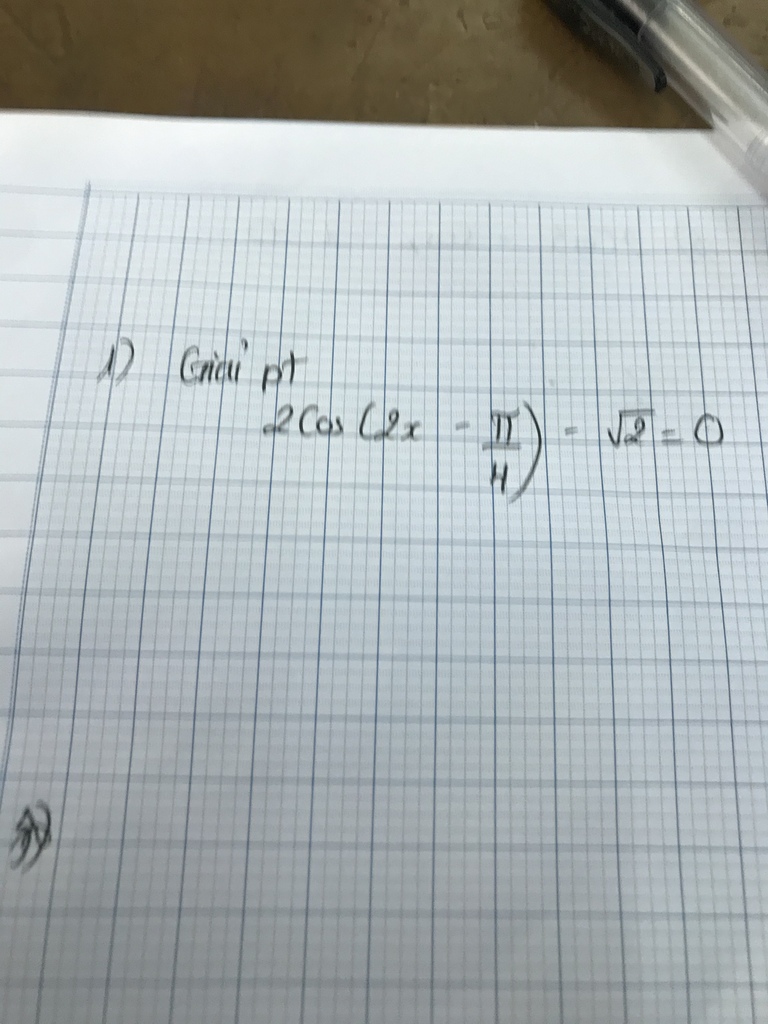 1) Giải pt
2Cos (2x - π/4) - √2 = 0